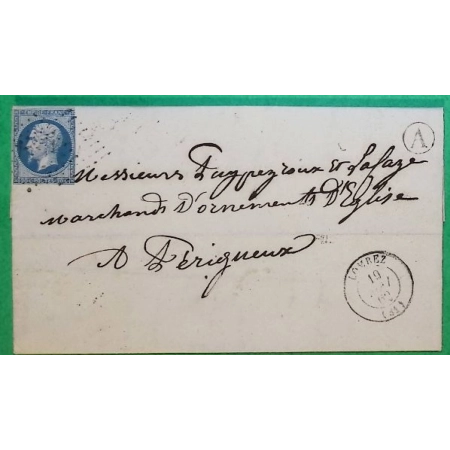 A
Messieurs Puypeyroux et Lafaye
Marchands D'ornements D'Eglise
A Périgueux
LOMBEZ
19
(31)